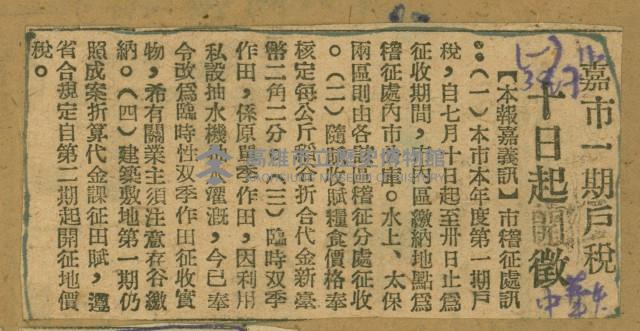 嘉市一期戶稅
十日起開徵
【本報嘉義訊】市稽征處訊
：（一）本市本年度第一期戶
稅，自七月十日起至卅日止爲
征收期間，市區繳納地點爲
稽征處內市庫。水上、太保
兩區則由各該區稽征分處征收
。（二）隨賦收購糧食價格奉
核定每公斤穀谷折合代金新臺
幣二角二分。（三）臨時双季
作田，係原單季作田，因利用
私設抽水機抽水灌漑，今已奉
令改爲臨時性双季作田征收實
物，希有關業主須注意存谷繳
納。（四）建築敷地第一期仍
照成案折算代金課征田賦，遵
省令規定自第二期起開征地價
稅。
(一)
39.7.11
中華
高雄市立歷史博物館
KAOHSIUNG MUSEUM OF HISTORY